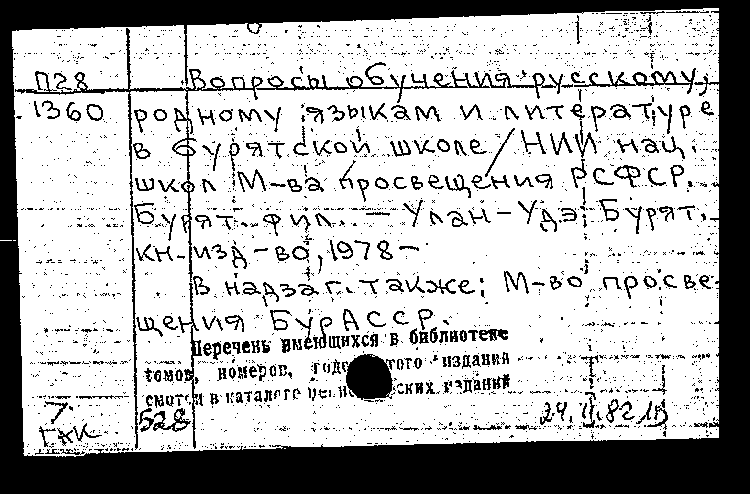 П28 Вопросы обучения русскому,
1360 родному языкам и литературе
в бурятской школе / НИИ нац.
школ М-ва просвещения РСФСР.
Бурят. фил. — Улан-Удэ: Бурят.
кн. изд-во, 1978 —
В надзаг. также: М-во просве-
щения БурАССР.
Перечень имеющихся в библиотеке
томов, номеров, годов этого издания
смотри в каталоге ских изданий
7.
ГАК 528